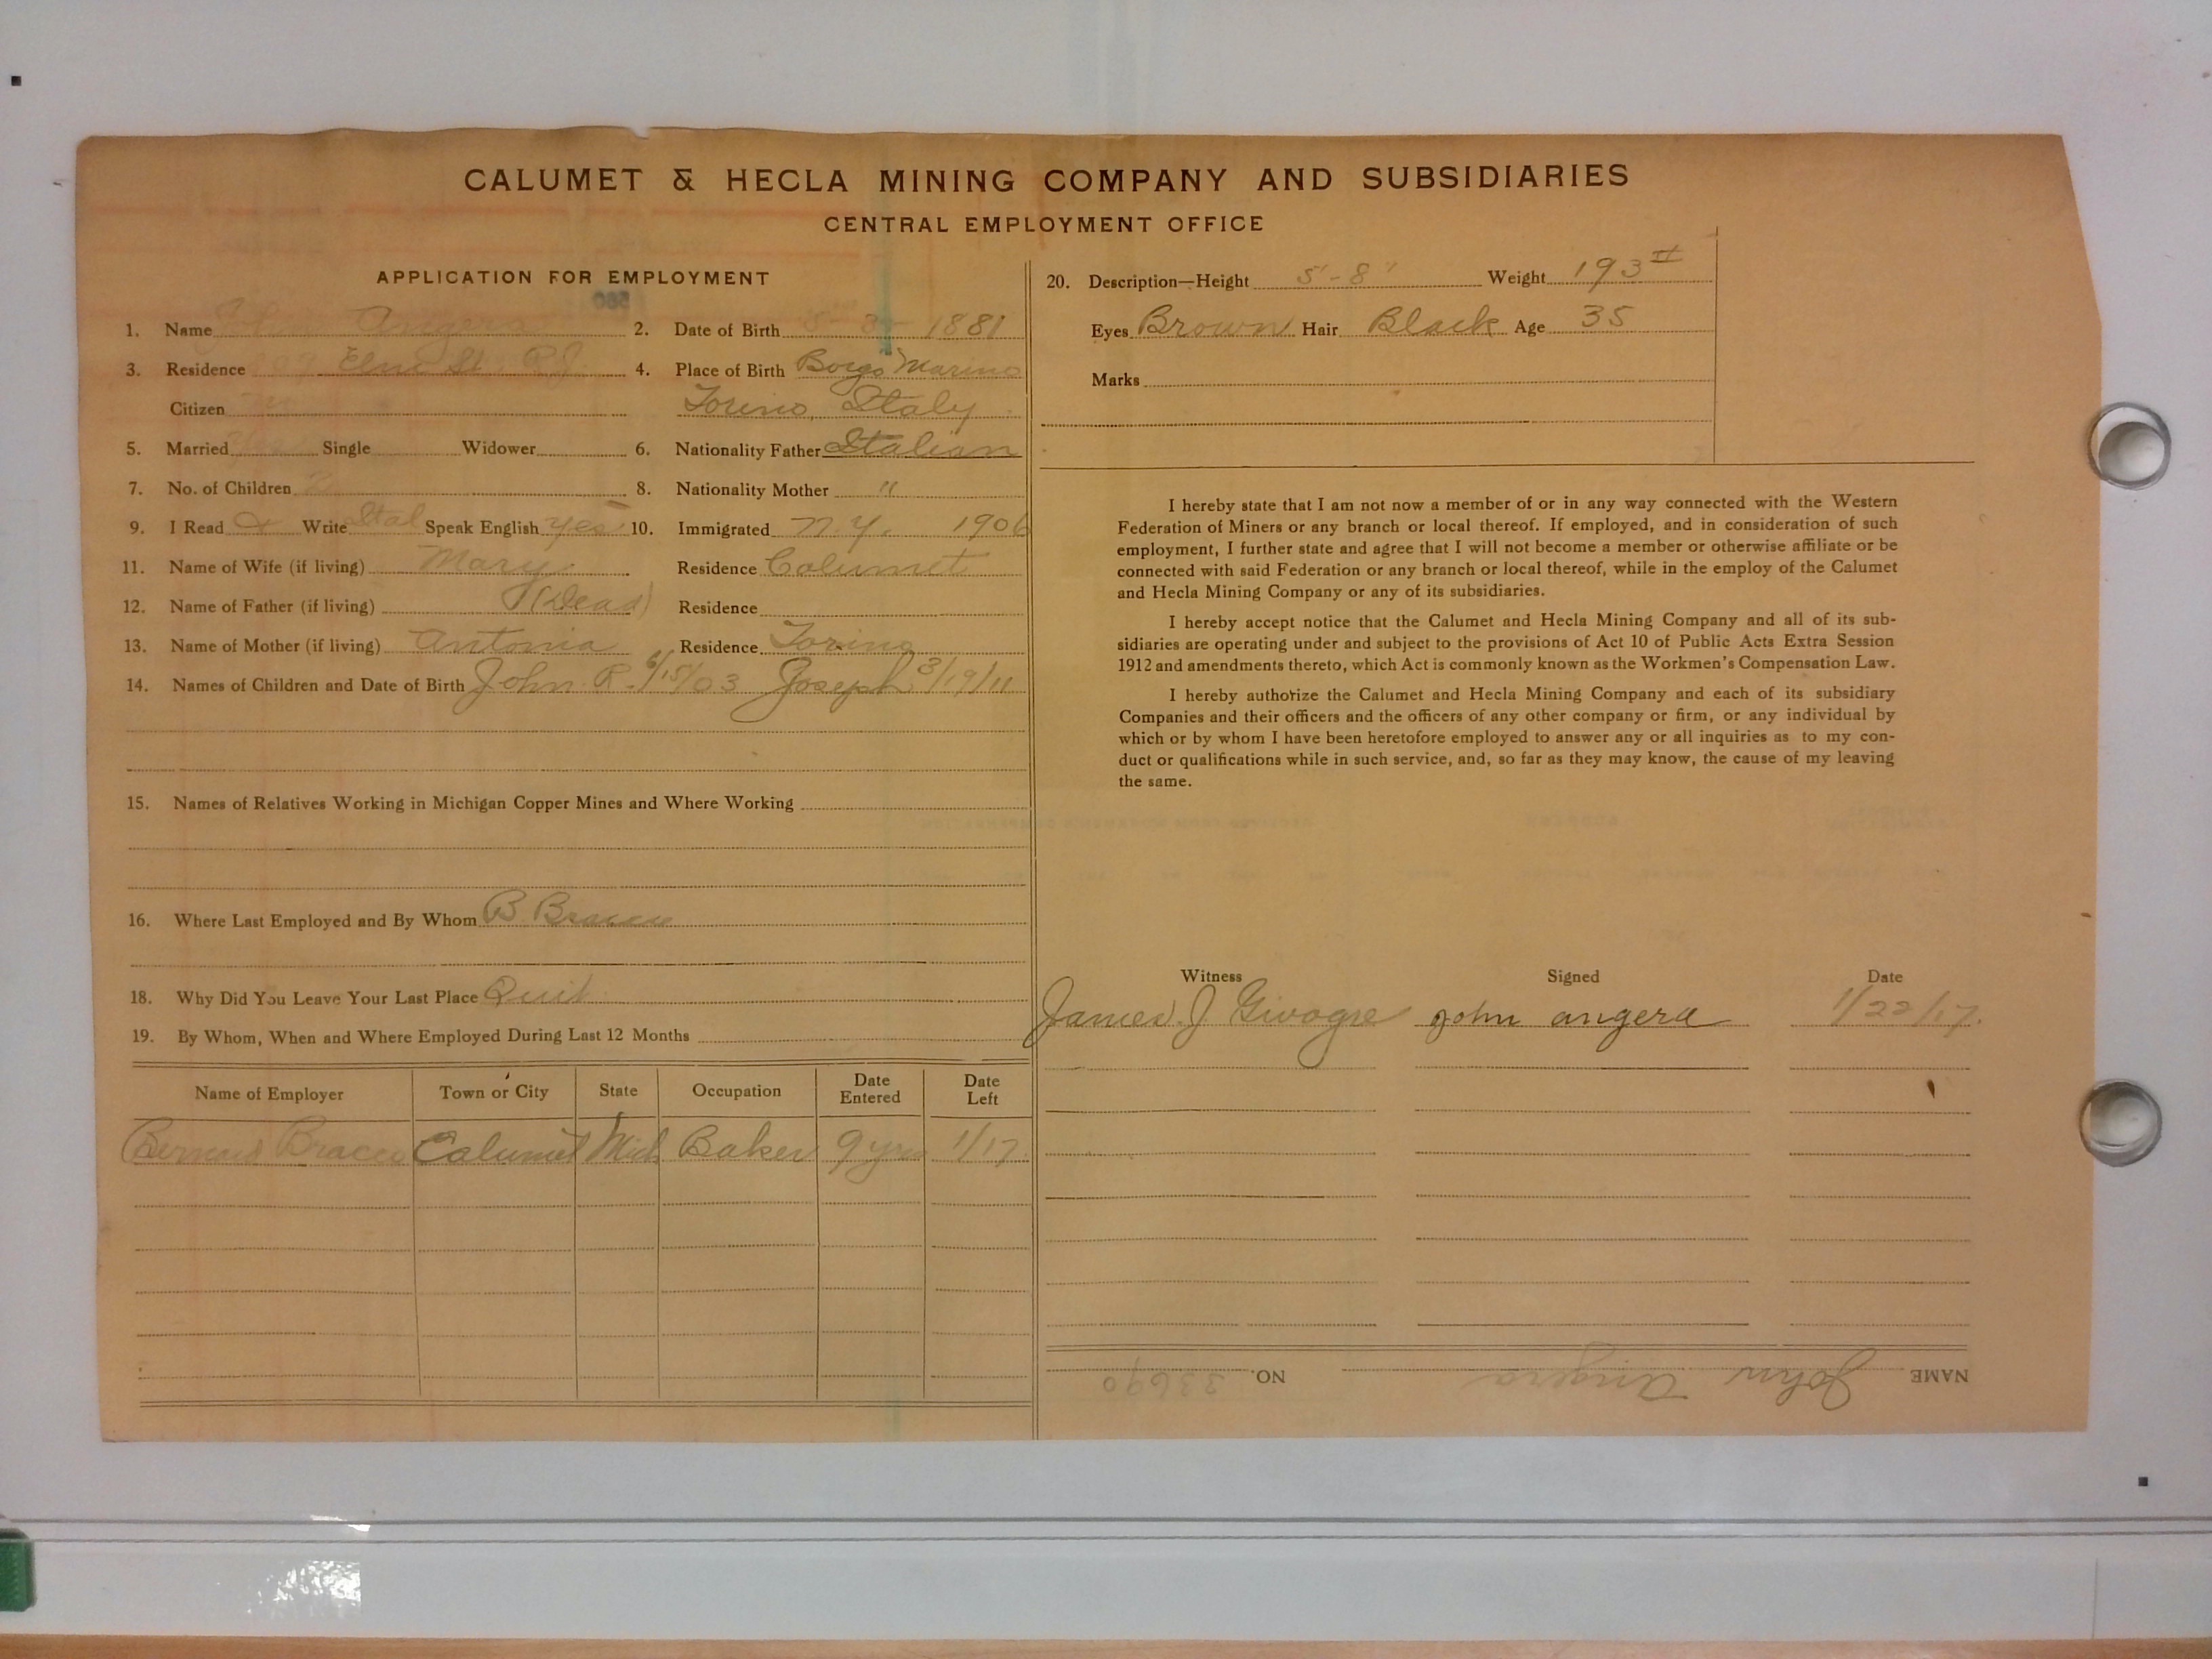 CALUMET & HECLA MINING COMPANY AND SUBSIDIARIES
CENTRAL EMPLOYMENT OFFICE
APPLICATION FOR EMPLOYMENT
1. Name John Angera 2. Date of Birth 1881
3. Residence Elm St. 4. Place of Birth Borgo Marino
Citizen Torino, Italy
5. Married Yes Single Widower 6. Nationality Father Italian
7. No. of Children 2 8. Nationality Mother "
9. I Read & Write Ital Speak English Yes 10. Immigrated N.Y. 1906
11. Name of Wife (if living) Mary Residence Calumet
12. Name of Father (if living) (Dead) Residence
13. Name of Mother (if living) Antonia Residence Torino
14. Names of Children and Date of Birth John R. 6/15/03 Joseph 3/19/11
15. Names of Relatives Working in Michigan Copper Mines and Where Working
16. Where Last Employed and By Whom B. Bracco
18. Why Did You Leave Your Last Place Quit
19. By Whom, When and Where Employed During Last 12 Months
Name of Employer Town or City State Occupation Date Entered Date Left
Bracco Calumet Mich Baker 9 yrs 1/17
20. Description—Height 5'-8" Weight 193#
Eyes Brown Hair Black Age 35
Marks
I hereby state that I am not now a member of or in any way connected with the Western
Federation of Miners or any branch or local thereof. If employed, and in consideration of such
employment, I further state and agree that I will not become a member or otherwise affiliate or be
connected with said Federation or any branch or local thereof, while in the employ of the Calumet
and Hecla Mining Company or any of its subsidiaries.
I hereby accept notice that the Calumet and Hecla Mining Company and all of its sub-
sidiaries are operating under and subject to the provisions of Act 10 of Public Acts Extra Session
1912 and amendments thereto, which Act is commonly known as the Workmen's Compensation Law.
I hereby authorize the Calumet and Hecla Mining Company and each of its subsidiary
Companies and their officers and the officers of any other company or firm, or any individual by
which or by whom I have been heretofore employed to answer any or all inquiries as to my con-
duct or qualifications while in such service, and, so far as they may know, the cause of my leaving
the same.
Witness Signed Date
James J. John angera 1/22/17.
NAME John Angera NO. 33690